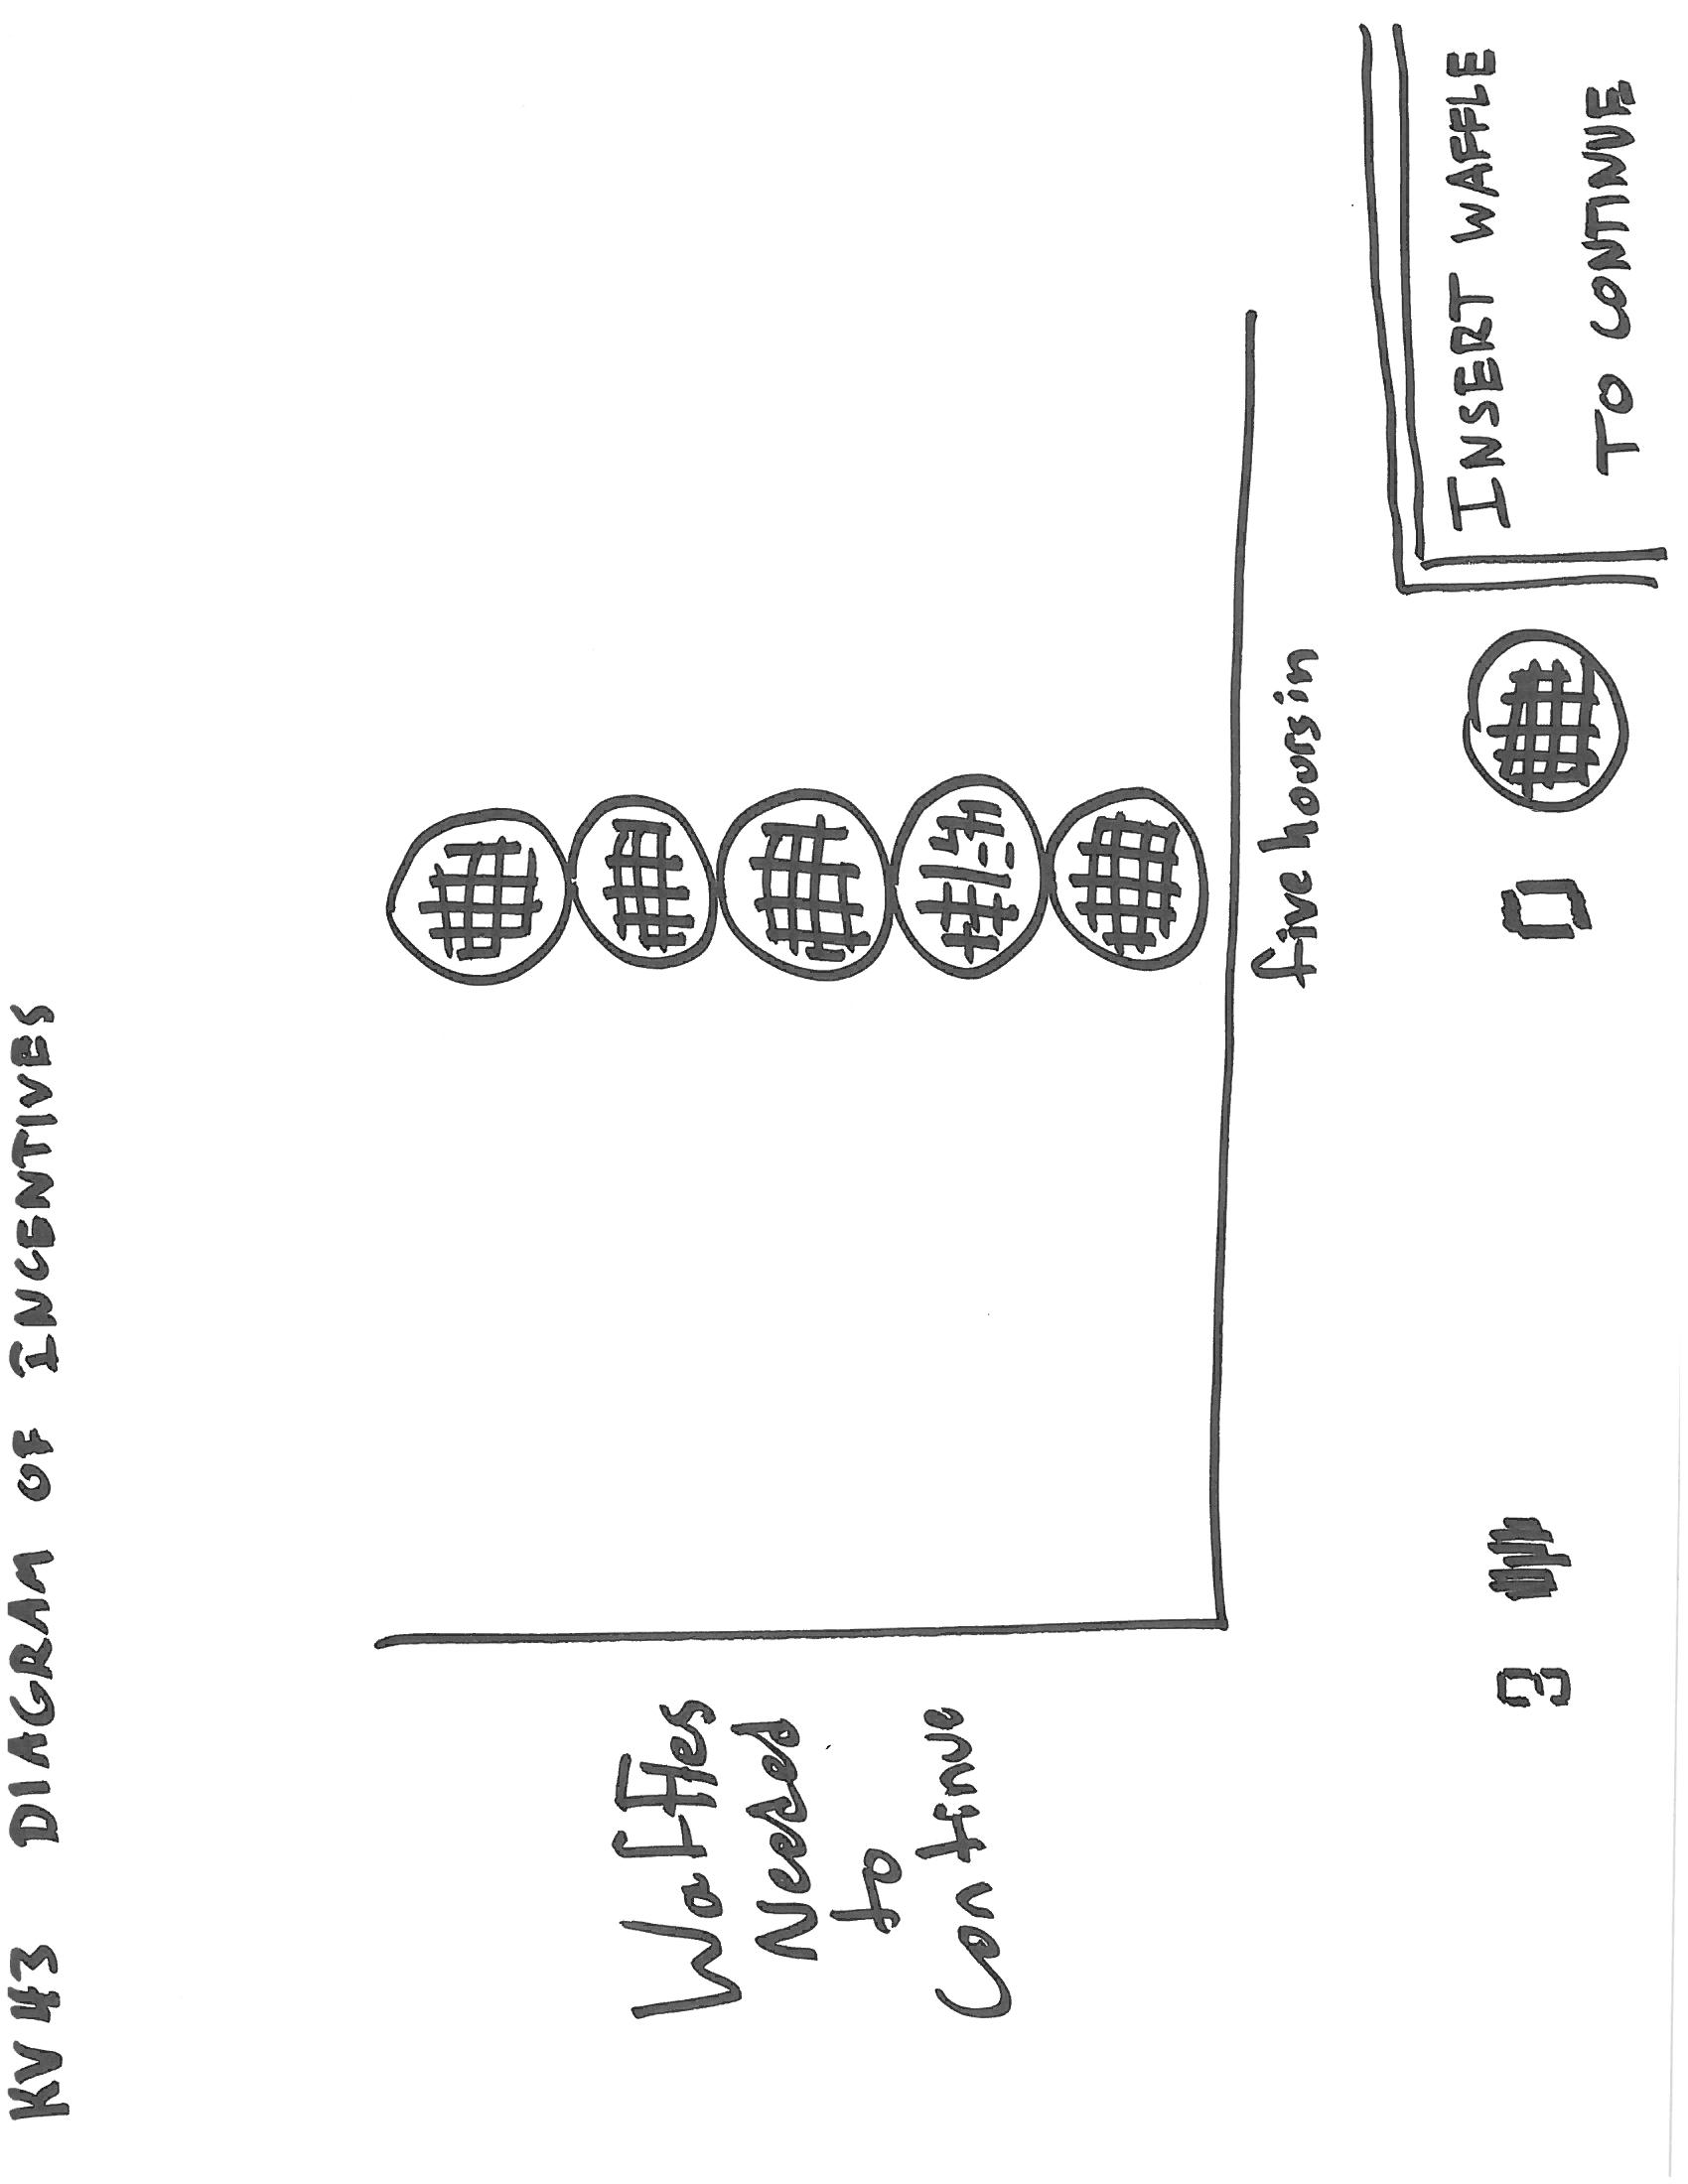 KV 43 DIAGRAM OF INCENTIVES
Waffles
Needed
to
Continue
five hours in
INSERT WAFFLE
TO CONTINUE